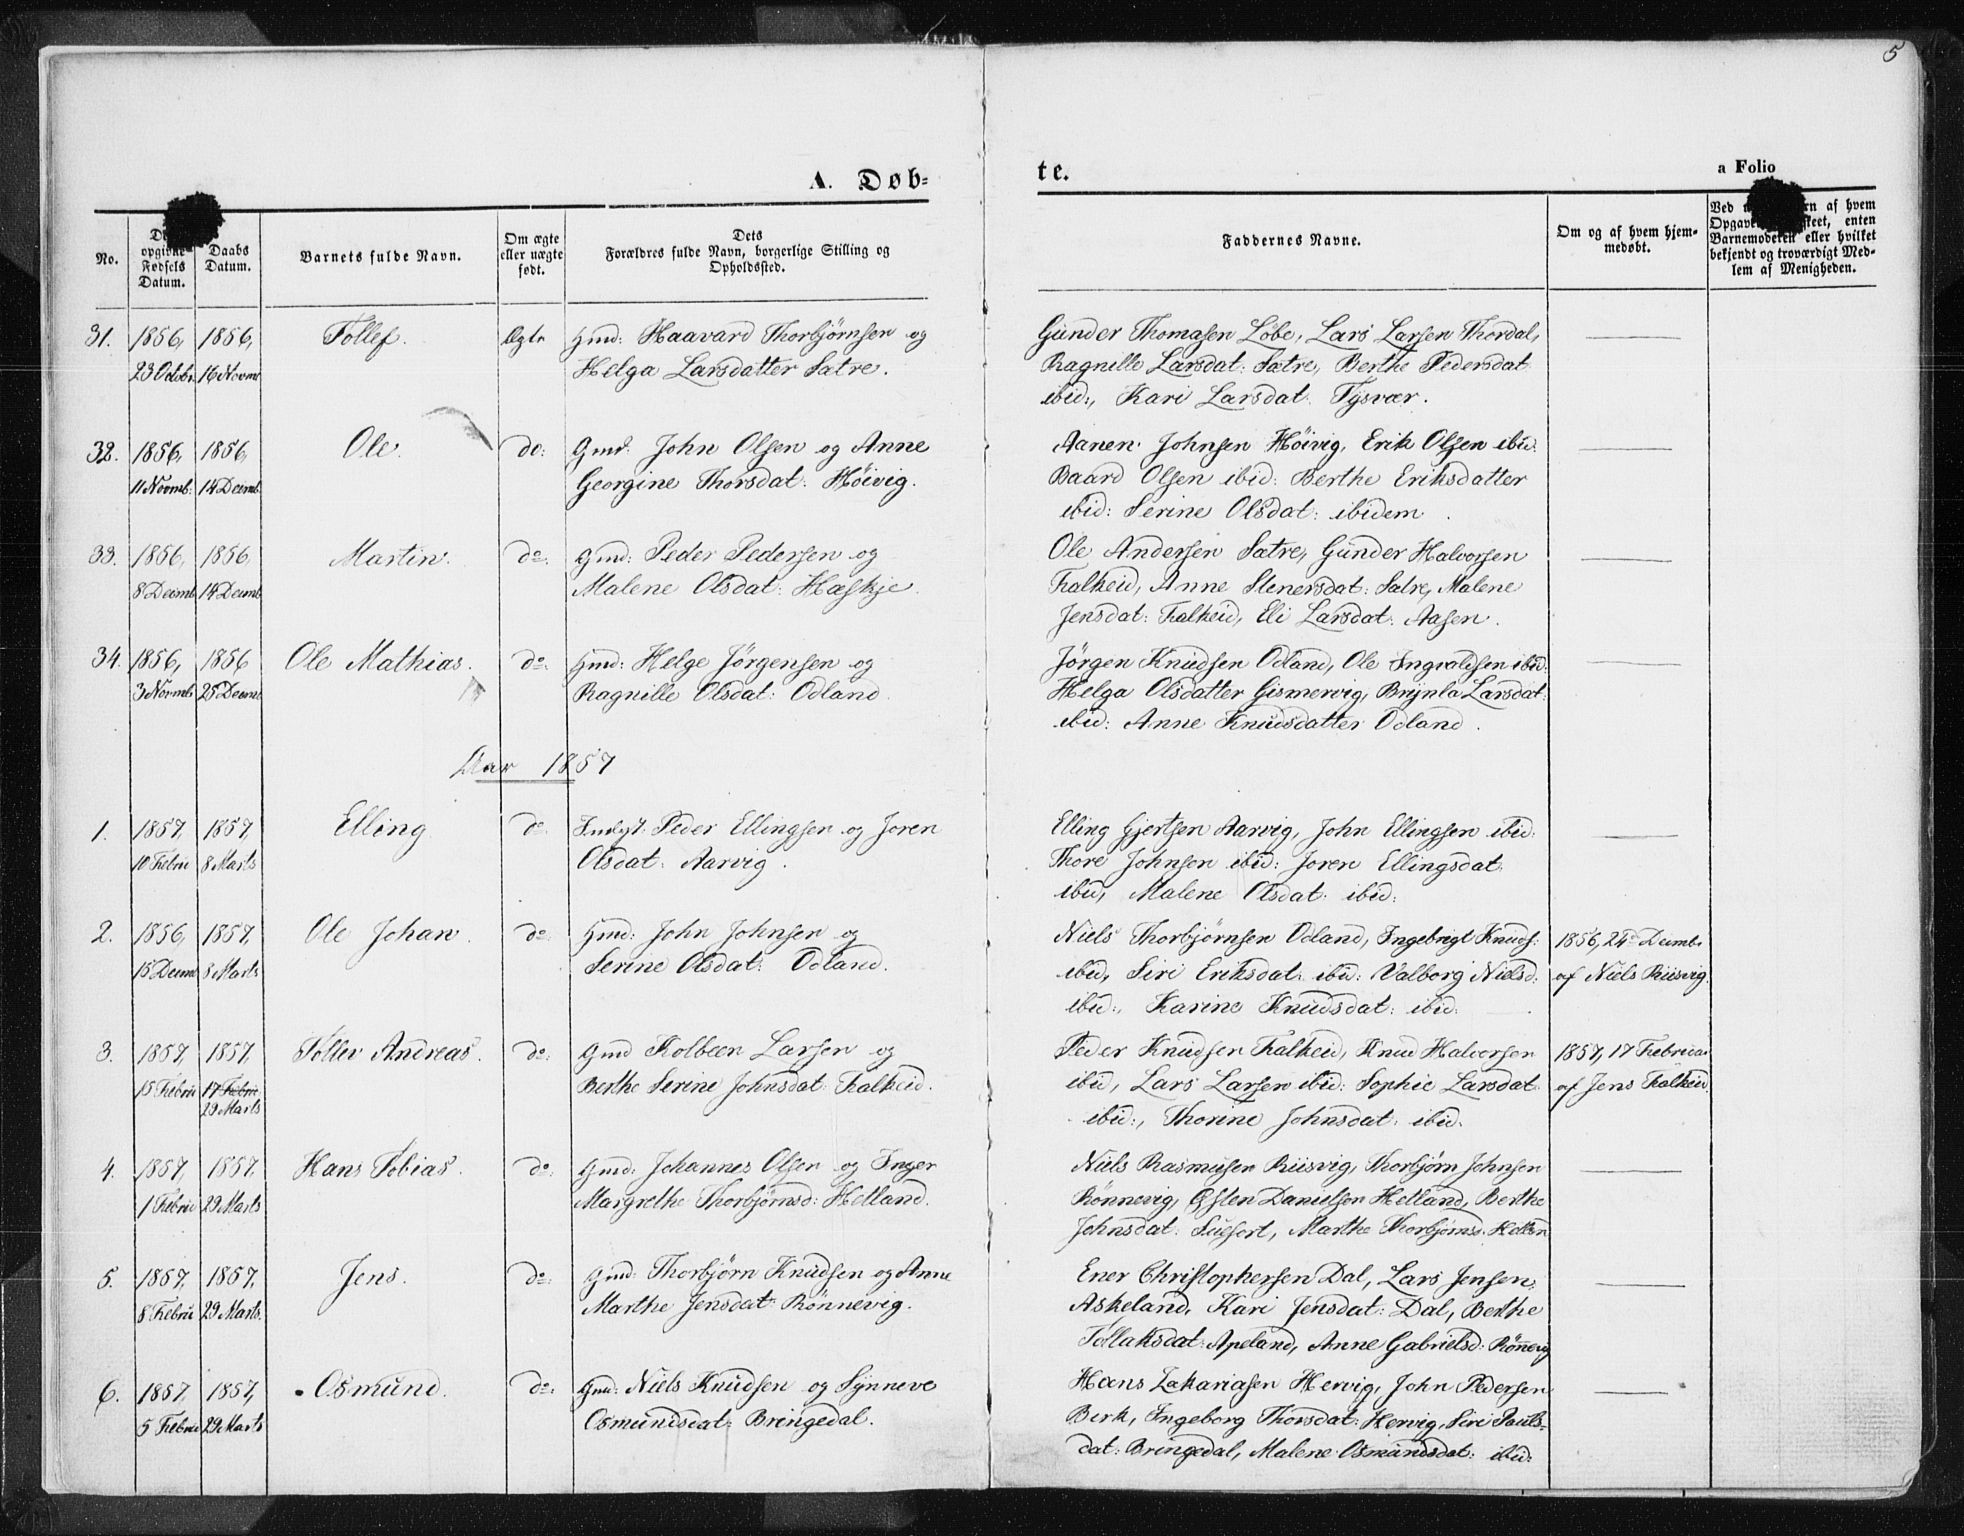 5
A. Døb=
te.
a Folio
No.
opgivne
Fødsels
Datum.
Daabs
Datum.
Barnets fulde Navn.
Om ægte
eller uægte
født.
Dets
Forældres fulde Navn, borgerlige Stilling og
Opholdssted.
Faddernes Navne.
Om og af hvem hjem-
medøbt.
Ved af hvem
enten
Barnemoderen eller hvilket
bekjendt og troværdigt Med-
lem af Menigheden.
31. 1856, 1856, Tollef. Ægte Gmd: Haavard Thorbjørnsen og
23 Octobr 16 Novmb Helga Larsdatter Sætre.
Gunder Thomasen Løbe, Lars Larsen Thordal,
Ragnille Larsdat: Sætre, Berthe Pedersdat
ibid:, Kari Larsdat: Tysvær.
32. 1856, 1856, Ole. do: Gmd: John Olsen og Anne
11 Novmb: 14 Decmb. Georgine Thorsdat: Høivig.
Aanen Johnsen Høivig, Erik Olsen ibid:
Baard Olsen ibid: Berthe Eriksdatter
ibid: Serine Olsdat: ibidem.
33. 1856, 1856, Martin. do: Gmd: Peder Pedersen og
8 Decmb 14 Decmb Malene Olsdat: Hæskje.
Ole Andersen Sætre, Gunder Halvorsen
Falkeid, Anne Stenersdat: Sætre, Malene
Jensdat: Falkeid, Eli Larsdat: Aasen.
34. 1856, 1856 Ole Mathias. do: Gmd: Helge Jørgensen og
3 Novmb 25 Decmb Ragnille Olsdat: Odland
Jørgen Knudsen Odland, Ole Ingvaldsen ibid:
Helga Olsdatter Gismervig, Brynla Larsdat:
ibid: Anne Knudsdatter Odland.
Aar 1857
1. 1857, 1857, Elling. do: Indst. Peder Ellingsen og Joren
10 Febru 8 Marts Olsdat: Aarvig.
Elling Gjertsen Aarvig, John Ellingsen ibid:
Thore Johnsen ibid: Joren Ellingsdat:
ibid, Malene Olsdat: ibid:
2. 1856, 1857, Ole Johan. do: Gmd: John Johnsen og
15 Decmb 8 Marts Serine Olsdat: Odland.
Niels Thorbjørnsen Odland, Ingebrigt Knuds: 1856, 24de Decmb:
ibid, Siri Eriksdat: ibid: Valborg Nielsd: af Niels Riisvig.
ibid:, Karine Knudsdat: ibid:
3. 1857, 1857, Tollev Andreas. do: Gmd Kolbeen Larsen og
15 Febru 17 Febru Berthe Serine Johnsdat: Falkeid.
29 Marts
Peder Knudsen Falkeid, Knud Halvorsen 1857, 17 Februar
ibid, Lars Larsen ibid: Sophie Larsdat: af Jens Falkeid
ibid:, Thorine Johnsdat: ibid.
4. 1857, 1857, Hans Tobias. do: Gmd: Johannes Olsen og Inger
1 Febru 29 Marts Margrethe Thorbjørnsd: Hetland.
Niels Rasmusen Riisvig, Thorbjørn Johnsen
Rønnevig, Østen Danielsen Hetland, Berthe
Johnsdat: Suefort, Marthe Thorbjørnsd: Hetlan
5. 1857, 1857, Jens. do: Gmd: Thorbjørn Knudsen og Anne
8 Febru 29 Marts. Marthe Jensdat: Rønnevig.
Ener Christophersen Dal, Lars Jensen
Askeland, Kari Jensdat: Dal, Berthe
Tollaksdat: Apeland, Anne Gabrielsd: Rønnevig
6. 1857, 1857, Osmund. do: Gmd: Niels Knudsen og Synneve
5 Februa 29 Marts Osmundsdat: Bringedal.
Hans Zakariasen Hervig, John Pedersen
Birk, Ingeborg Thorsdat: Hervig, Siri Pauls-
dat: Bringedal, Malene Osmundsdat: ibid: